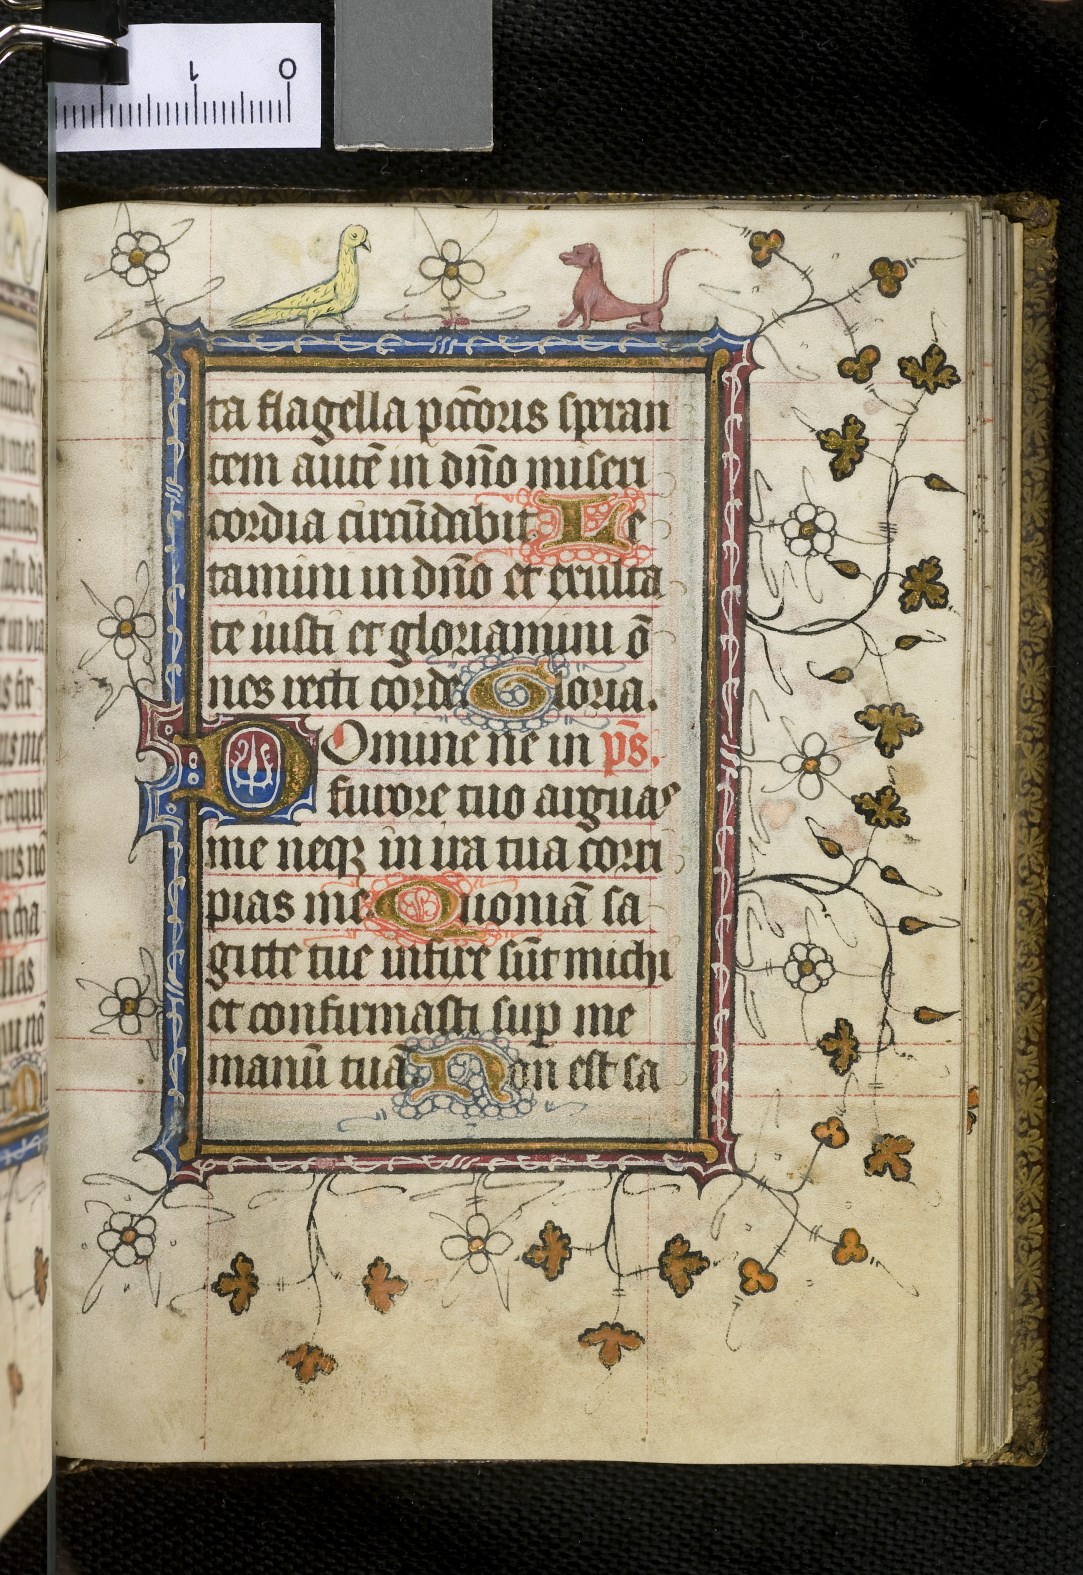 0 1
ta flagella pccōris speran
tem autē in dño miseri
cordia circūdabit Le
tamini in dño et exulta
te iusti et gloriamini ō
nes recti corde Gloria.
Domine ne in p̄s.
furore tuo arguas
me neqꝫ in ira tua corri
pias me Quoniā sa
gitte tue infixe sūt michi
et confirmasti suꝑ me
manū tuā Non est sa